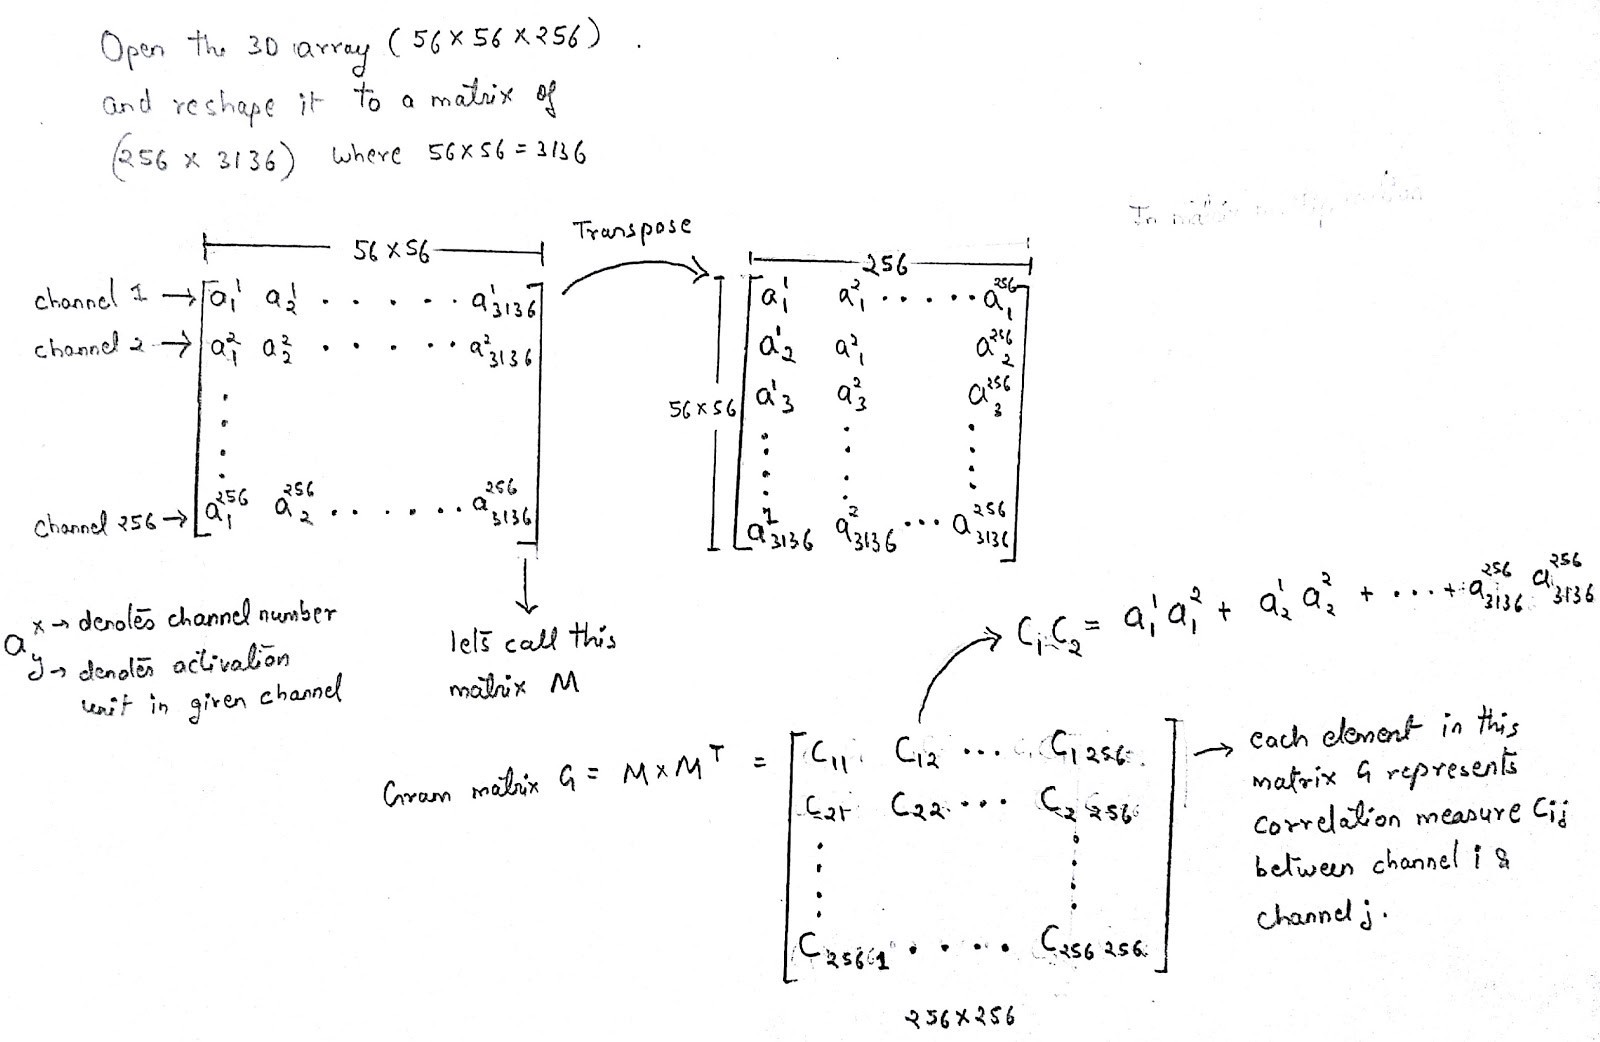 Open the 3D array (56 × 56 × 256)
and reshape it to a matrix of
(256 × 3136) where 56×56 = 3136
56×56
Transpose
256
channel 1 → a₁¹ a₂¹ . . . . . a¹₃₁₃₆
channel 2 → a₁² a₂² . . . . . . a²₃₁₃₆
channel 256 → a₁²⁵⁶ a₂²⁵⁶ . . . . . . a²⁵⁶₃₁₃₆
56×56
a₁¹ a₁² . . . . . a₁²⁵⁶
a¹₂ a²₁ a²⁵⁶₂
a¹₃ a²₃ a²⁵⁶₃
a¹₃₁₃₆ a²₃₁₃₆ ... a²⁵⁶₃₁₃₆
a x → denotes channel number
y → denotes activation
unit in given channel
lets call this
matrix M
C₁C₂ = a₁¹a₁² + a₂¹a₂² + . . . + a²⁵⁶₃₁₃₆ a²⁵⁶₃₁₃₆
Gram matrix G = M×Mᵀ =
C₁₁ C₁₂ ... C₁ ₂₅₆
C₂₁ C₂₂ ... C₂ ₂₅₆
C₂₅₆ ₁ . . . . C₂₅₆ ₂₅₆
256×256
→ each element in this
matrix G represents
correlation measure Cij
between channel i &
channel j.